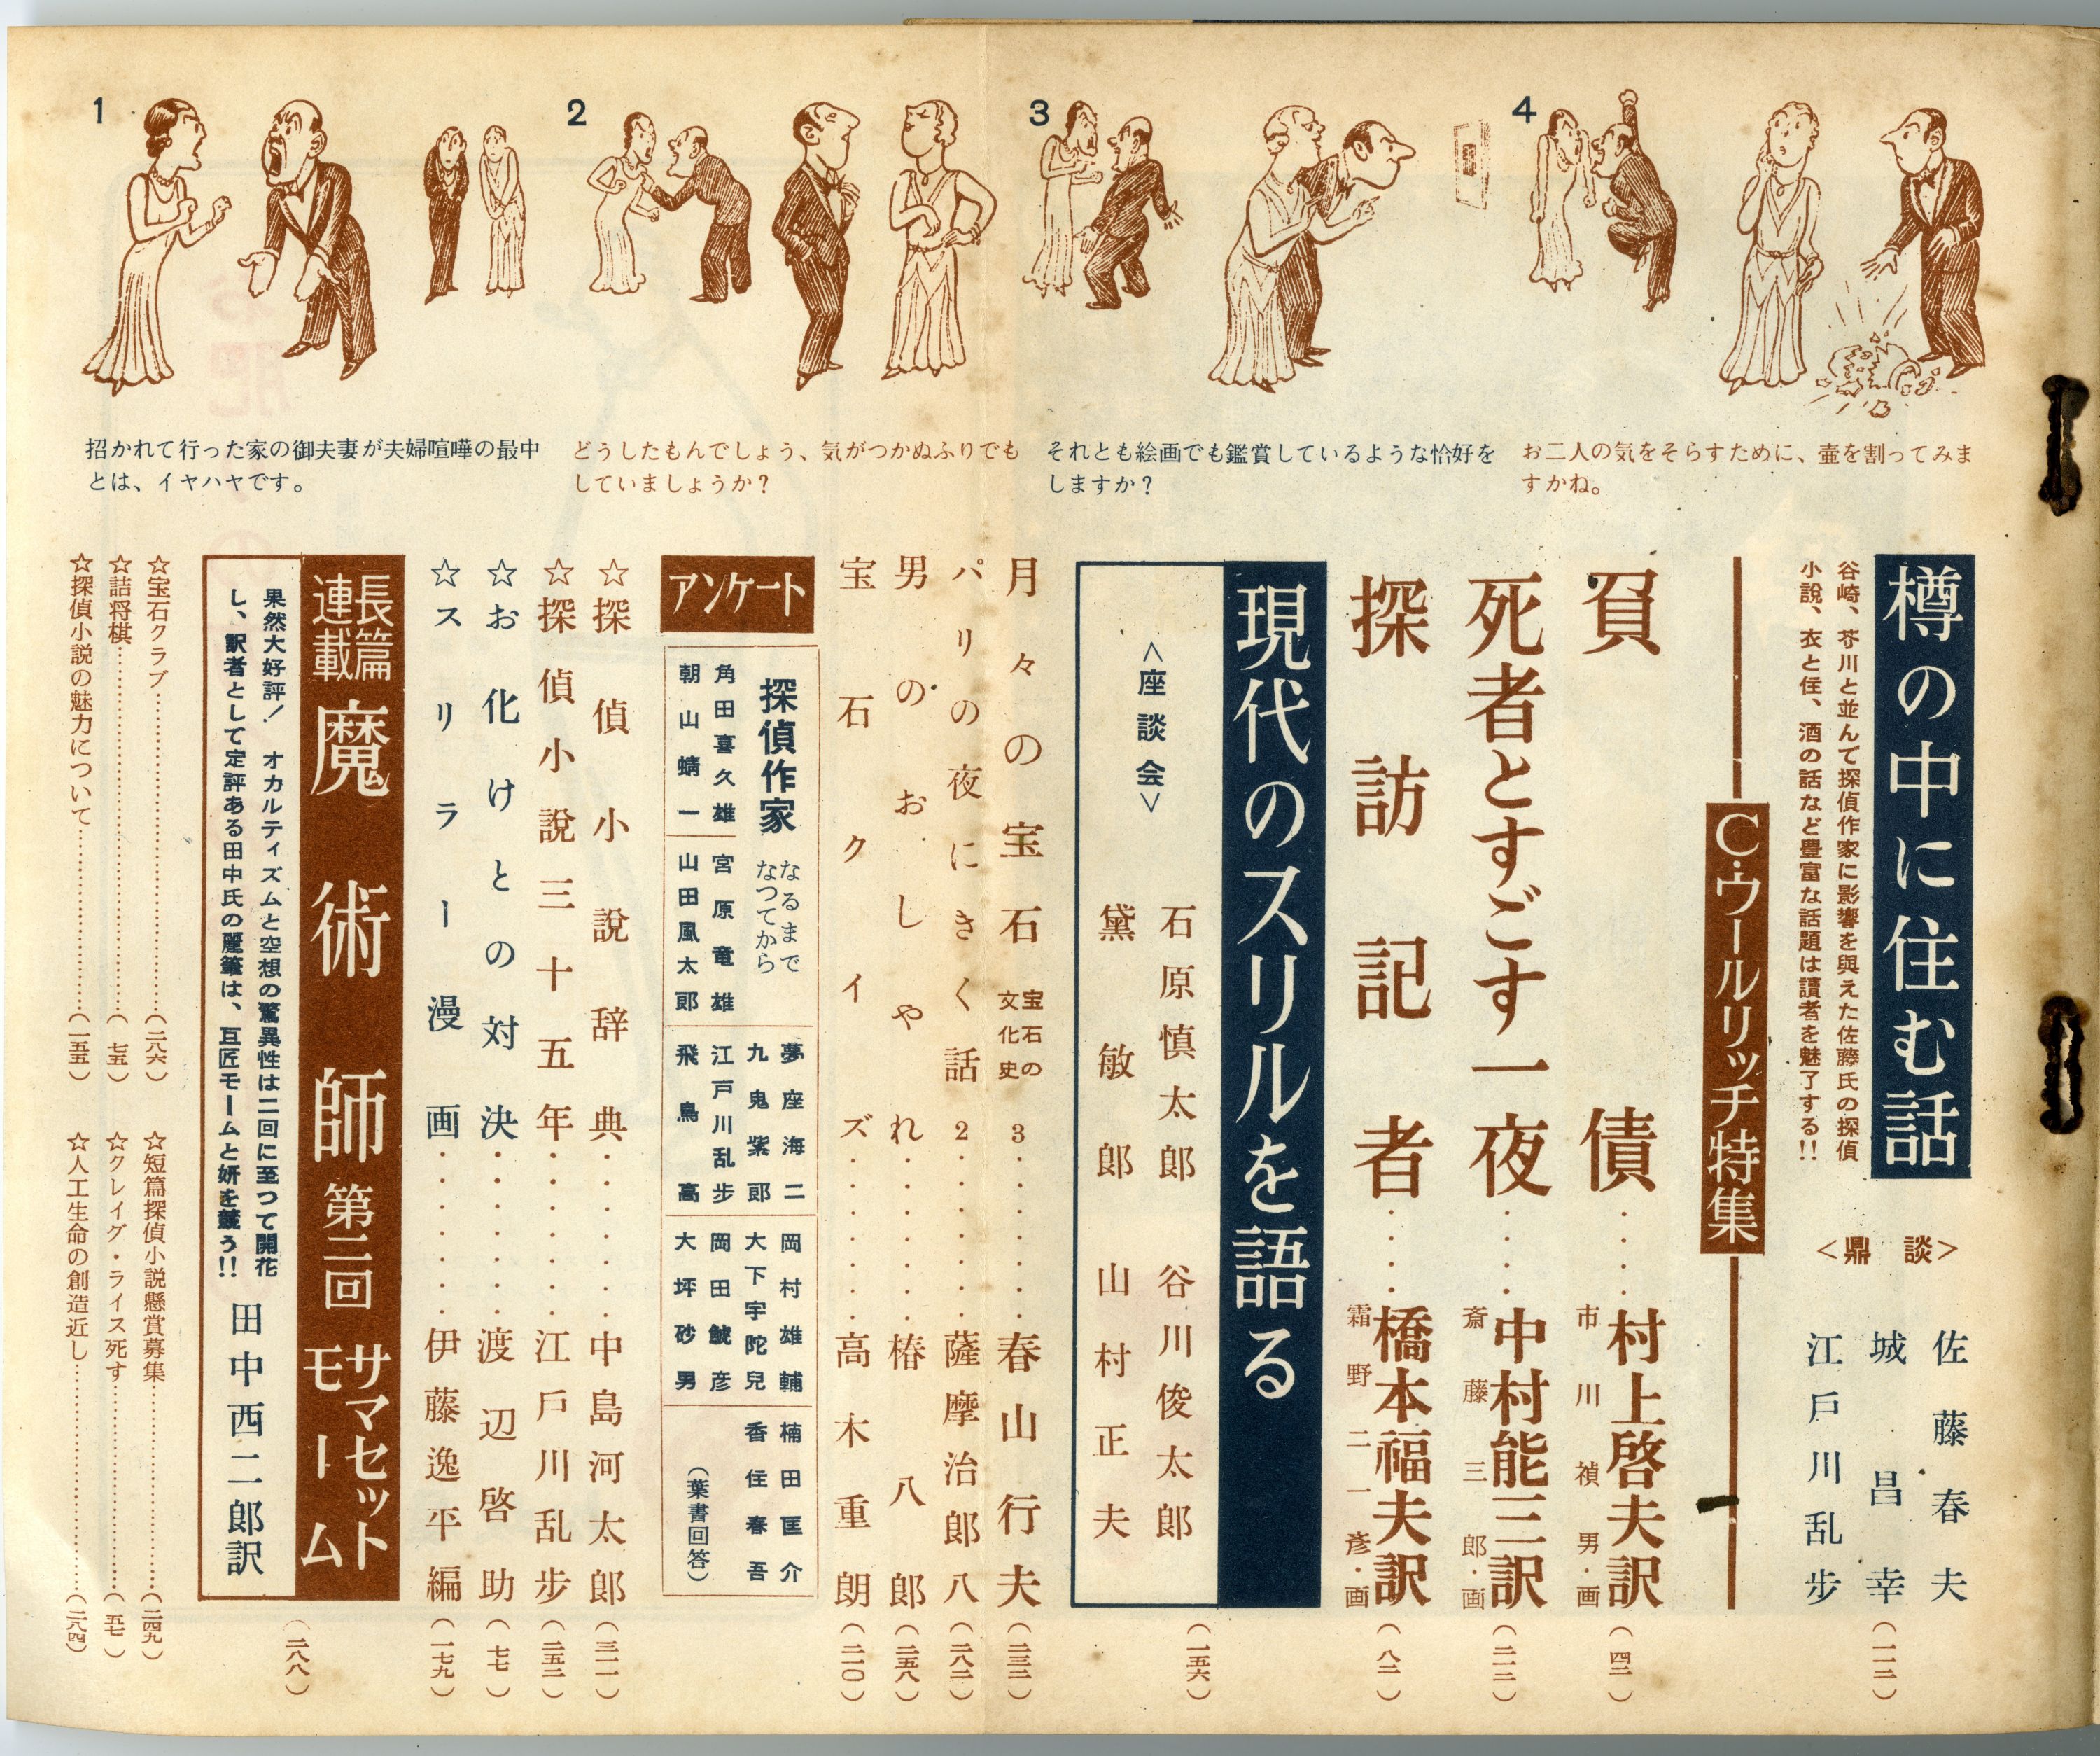 1
2
3
4
招かれて行った家の御夫妻が夫婦喧嘩の最中
とは、イヤハヤです。
どうしたもんでしょう、気がつかぬふりでも
していましょうか？
それとも絵画でも鑑賞しているような恰好を
しますか？
お二人の気をそらすために、壷を割ってみま
すかね。
樽の中に住む話
谷崎、芥川と並んで探偵作家に影響を与えた佐藤氏の探偵
小說、衣と住、酒の話など豊富な話題は讀者を魅了する!!
＜鼎談＞
佐藤春夫
城昌幸
江戸川乱步
（一一二）
C・ウールリッチ特集
負債‥‥村上啓夫訳
市川禎男・画
（四二）
死者とすごす一夜‥‥中村能三訳
斎藤三郎・画
（二一二）
探訪記者‥‥橋本福夫訳
霜野二一彦・画
（八二）
現代のスリルを語る
＜座談会＞
石原慎太郎
谷川俊太郎
黛敏郎
山村正夫
（一五六）
月々の宝石 宝石の文化史 3‥‥春山行夫（二三二）
パリの夜にきく話 2‥‥薩摩治郎八（二八二）
男のおしやれ‥‥椿八郎（二五八）
宝石クイズ‥‥高木重朗（二一〇）
アンケート
探偵作家 なるまで なつてから
角田喜久雄
朝山蜻一
宮原竜雄
山田風太郎
夢座海二
九鬼紫郎
江戸川乱步
飛鳥高
岡村雄輔
大下宇陀兒
岡田鯱彦
大坪砂男
楠田匡介
香住春吾
（葉書回答）
☆探偵小說辞典‥‥中島河太郎（三一一）
☆探偵小說三十五年‥‥江戸川乱步（二五二）
☆お化けとの対決‥‥渡辺啓助（七七）
☆スリラー漫画‥‥伊藤逸平編（一七九）
長篇連載 魔術師 第二回 サマセット モーム
果然大好評！ オカルティズムと空想の驚異性は二回に至つて開花
し、訳者として定評ある田中氏の麗筆は、巨匠モームと妍を競う!!
田中西二郎訳
（二八八）
☆宝石クラブ‥‥（二八六）
☆詰将棋‥‥（七五）
☆探偵小説の魅力について‥‥（一五五）
☆短篇探偵小説懸賞募集‥‥（二四九）
☆クレイグ・ライス死す‥‥（五七）
☆人工生命の創造近し‥‥（二八四）